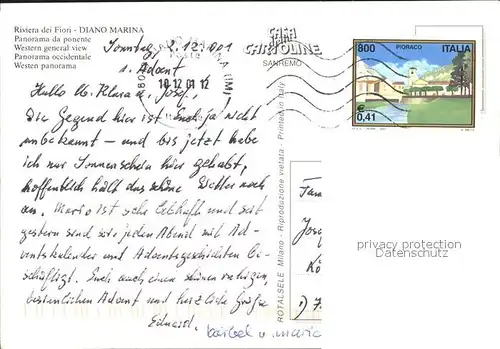 Riviera dei Fiori - DIANO MARINA
Panorama da ponente
Western general view
Panorama occidentale
Westen panorama
Sonntag, 2.12.001
1. Advent
Hallo Klara u. Josef,
Die Gegend hier ist Euch ja nicht
unbekannt – und bis jetzt habe
ich nur Sonnenschein hier gehabt,
hoffentlich hält das schöne Wetter noch
an. Mario ist sehr lebhaft und seit
gestern sind wir jeden Abend mit Ad-
ventskalender und Adventsgeschichten be-
schäftigt. Euch auch einen schönen ruhigen,
besinnlichen Advent und herzliche Grüße
Eduard.
Bärbel u. Mario
10.12.01 12
CARTOLINE
SANREMO
800 PIORACO ITALIA
€
0,41
ROTALSELE Milano - Riproduzione vietata - Printed in Italy
Fam
Josef
privacy protection
Datenschutz